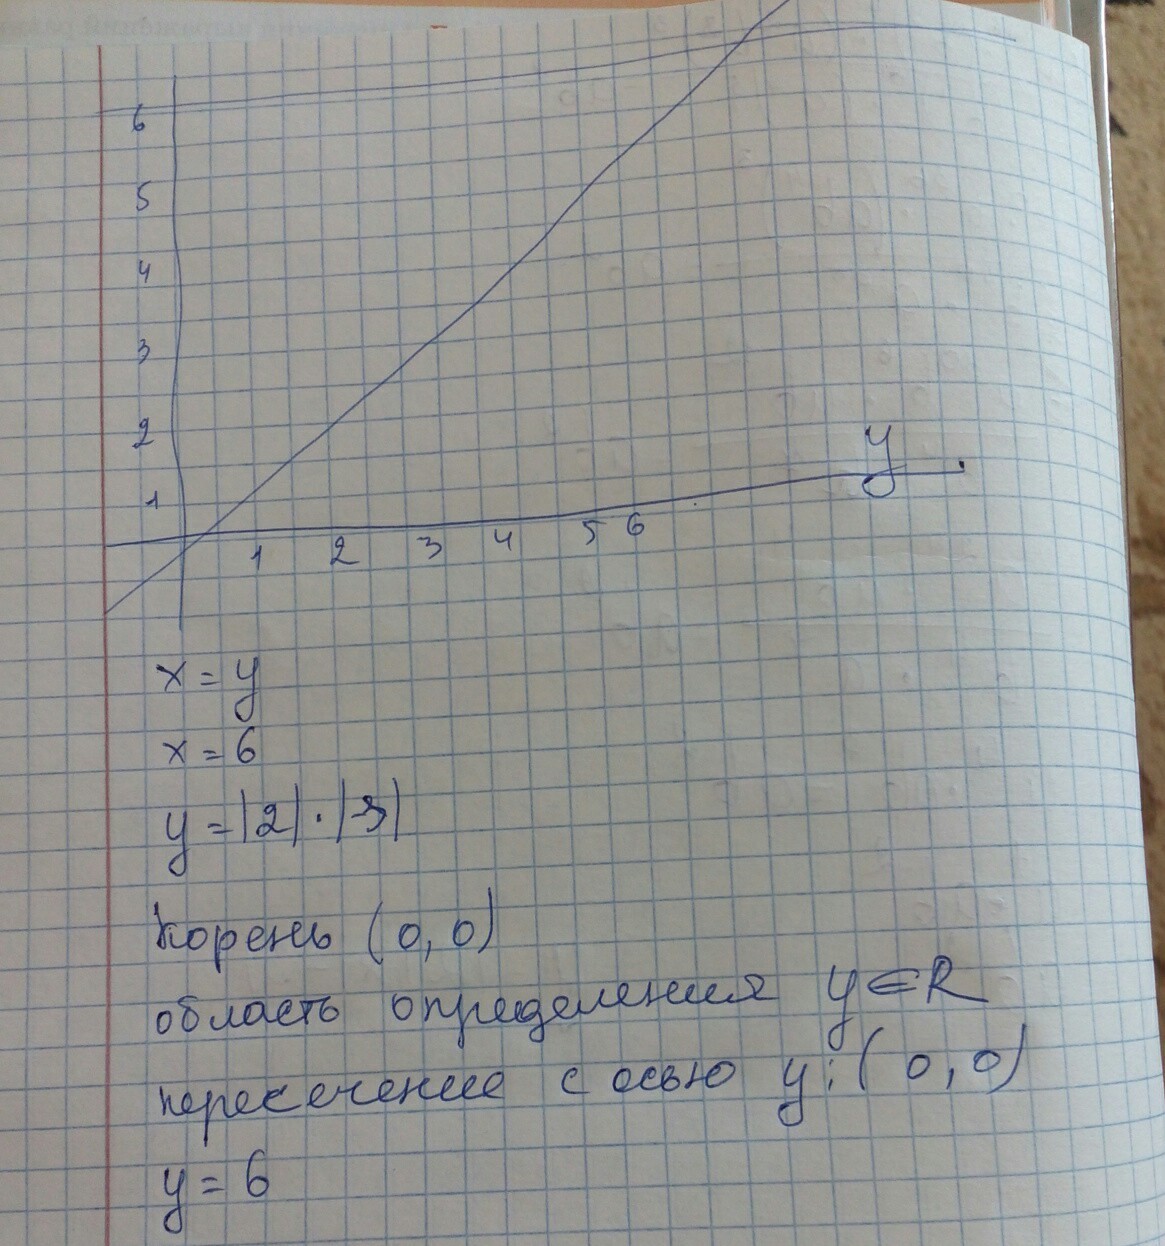 6
5
4
3
2
1
y
1 2 3 4 5 6
x = y
x = 6
y = |2| · |-3|
Корень (0, 0)
область определения y ∈ R
пересечение с осью y: (0, 0)
y = 6